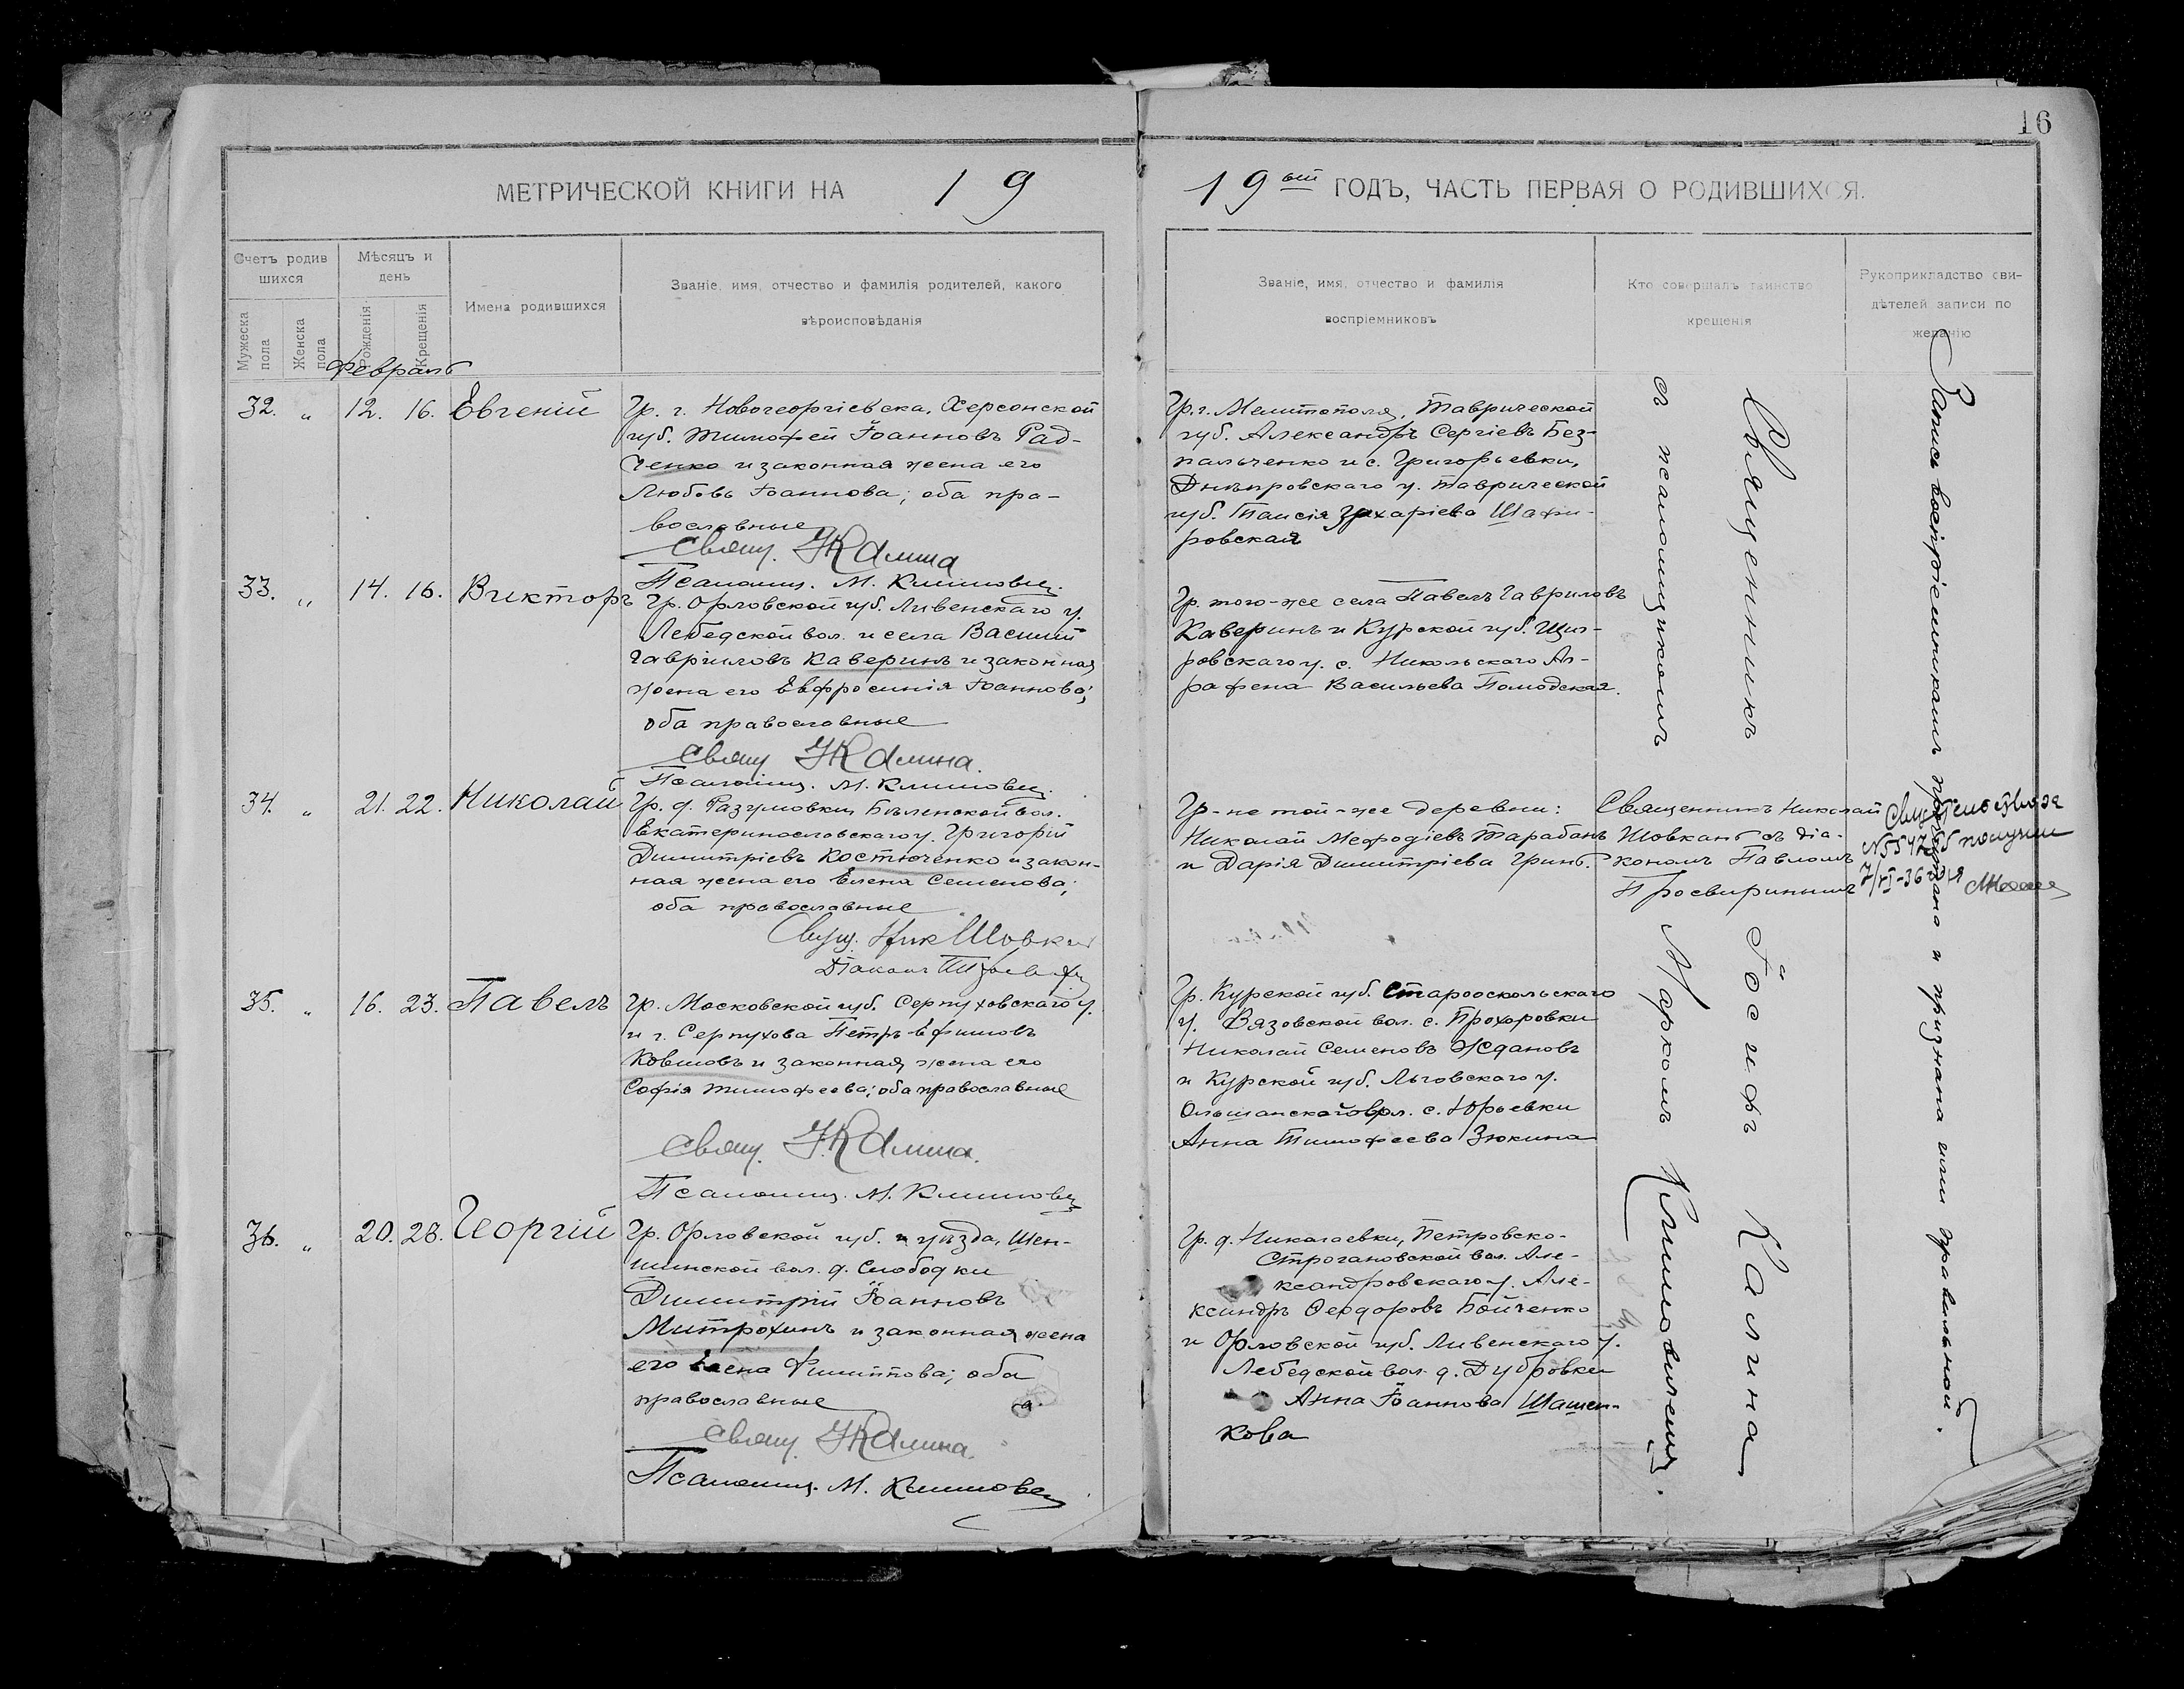 16
МЕТРИЧЕСКОЙ КНИГИ НА 19
19ый ГОДЪ, ЧАСТЬ ПЕРВАЯ О РОДИВШИХСЯ.
Счетъ родив
шихся
Мужеска пола
Женска пола
Мѣсяцъ и
день
Рожденія
Крещенія
Имена родившихся
Званіе, имя, отчество и фамилія родителей, какого
вѣроисповѣданія
Званіе, имя, отчество и фамилія
воспріемниковъ
Кто совершалъ таинство
крещенія
Рукоприкладство сви-
дѣтелей записи по
желанію
Февраль
32. " 12. 16. Евгеній
Гр. г. Новогеоргіевска, Херсонской
губ. Тимофей Іоанновъ Рад-
ченко и законная жена его
Любовь Іоаннова; оба пра-
вославные
Свящ. І Калина
Псаломщ. М. Климовец
Гр. г. Мелитополя, Таврической
губ. Александръ Сергіевъ Без-
пальченко и с. Григорьевки,
Днѣпровскаго у. Таврической
губ. Таисія Захаріева Шафи-
ровская
33. " 14. 16. Викторъ
Гр. Орловской губ. Ливенскаго у.
Лебедской вол. и села Василий
Гавріиловъ Каверинъ и законная
жена его Евфросинія Іоаннова;
оба православные
Свящ І Калина.
Псаломщ. М. Климовец.
Гр. того-же села Павелъ Гавриловъ
Каверинъ и Курской губ. Щиг-
ровскаго у. с. Никольскаго Аг-
рафена Васильева
34. " 21. 22. Николай
Гр. д. Разумовки, Бѣленской вол.
Екатеринославскаго у. Григорій
Димитріевъ Костюченко и закон-
ная жена его Елена Семенова;
оба православные
Свящ. Ник Шовкан
Діаконъ
Гр-не той-же деревни:
Николай Мефодіевъ Тарабанъ
и Дарія Димитріева Гринь.
Священникъ Николай
Шовкань съ діа-
кономъ Павломъ
Просвиринымъ
Свидетельство за
получил
7/VI-36
35. " 16. 23. Павелъ
Гр. Московской губ. Серпуховскаго у.
и г. Серпухова Петръ Ефимовъ
Ковшовъ и законная жена его
Софія Тимофеева; оба православные
Свящ. І. Калина.
Псаломщ. М. Климовец
Гр. Курской губ. Старооскольскаго
у. Вязовской вол. с. Прохоровки
Николай Семеновъ Ждановъ
и Курской губ. Льговскаго у.
Ольшанской вол. с. Юрьевки
Анна Тимофеева Зюкина
36. " 20. 28. Георгій
Гр. Орловской губ. и уѣзда, Шен-
шинской вол. д. Слободки
Димитрій Іоанновъ
Митрохинъ и законная жена
его Елена Филиппова; оба
православные
Свящ І Калина.
Псаломщ. М. Климовец
Гр. д. Николаевки, Петровско-
Строгановской вол. Але-
ксандровскаго у. Але-
ксандръ Феодоровъ Бойченко
и Орловской губ. Ливенскаго у.
Лебедской вол. д. Дубровки
Анна Іоаннова Шашен-
кова
Священникъ Іосифъ Калина
съ псаломщикомъ Маркомъ Климовичемъ.
Запись воспріемникамъ прочитана и признана ими правильной.